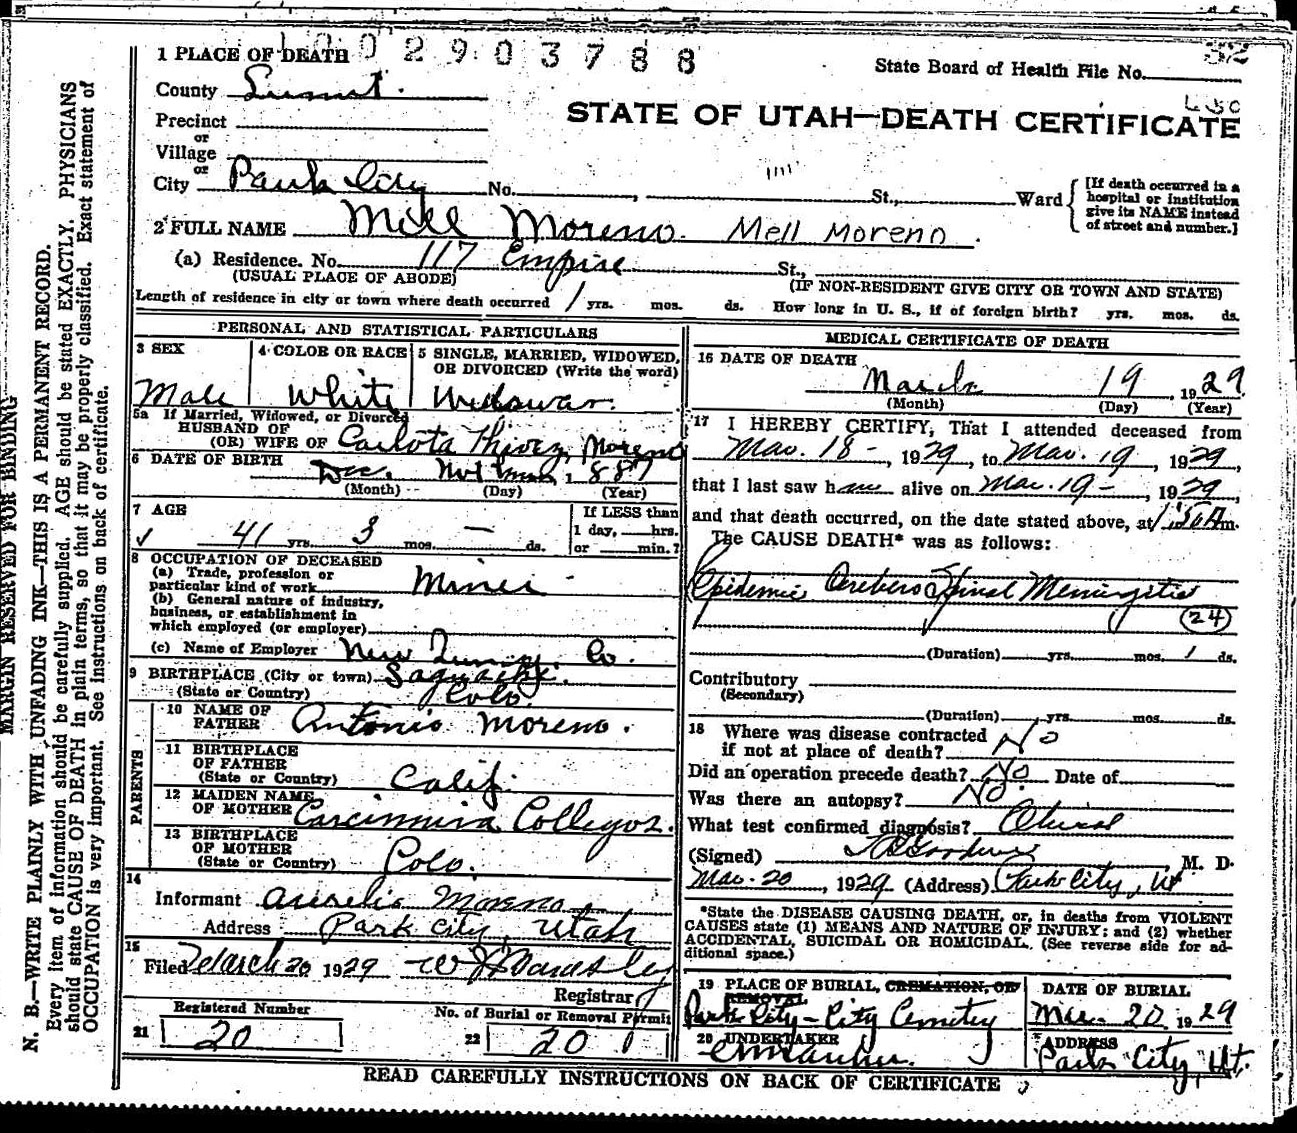 1 PLACE OF DEATH
1002903788
32
State Board of Health File No.
County Summit.
STATE OF UTAH—DEATH CERTIFICATE
Precinct
or
Village
or
City Park City No. , St., Ward
[If death occurred in a
hospital or institution
give its NAME instead
of street and number.]
2 FULL NAME Mell Moreno. Mell Moreno.
(a) Residence. No. 117 Empire St.,
(USUAL PLACE OF ABODE) (IF NON-RESIDENT GIVE CITY OR TOWN AND STATE)
Length of residence in city or town where death occurred 1 yrs. mos. ds. How long in U. S., if of foreign birth? yrs. mos. ds.
PERSONAL AND STATISTICAL PARTICULARS
3 SEX 4 COLOR OR RACE 5 SINGLE, MARRIED, WIDOWED,
OR DIVORCED (Write the word)
Male White Widower.
5a If Married, Widowed, or Divorced
HUSBAND OF
(OR) WIFE OF Carlota Moreno
6 DATE OF BIRTH
Dec. Not Known 1887
(Month) (Day) (Year)
7 AGE If LESS than
1 day, hrs.
41 yrs. 3 mos. — ds. or min.?
8 OCCUPATION OF DECEASED
(a) Trade, profession or
particular kind of work Miner
(b) General nature of industry,
business, or establishment in
which employed (or employer)
(c) Name of Employer New Quincy Co.
9 BIRTHPLACE (City or town) Saguache.
(State or Country) Colo.
PARENTS
10 NAME OF
FATHER Antonio Moreno.
11 BIRTHPLACE
OF FATHER
(State or Country) Calif.
12 MAIDEN NAME
OF MOTHER
13 BIRTHPLACE
OF MOTHER
(State or Country) Colo.
14
Informant Aurelio Moreno
Address Park City, Utah
15
Filed March 20 1929
Registrar
Registered Number No. of Burial or Removal Permit
21 20 22 20
MEDICAL CERTIFICATE OF DEATH
16 DATE OF DEATH
March 19, 1929
(Month) (Day) (Year)
17 I HEREBY CERTIFY, That I attended deceased from
Mar. 18 -, 1929, to Mar. 19, 1929,
that I last saw h alive on Mar. 19 -, 1929,
and that death occurred, on the date stated above, at m.
The CAUSE DEATH* was as follows:
Epidemic Cerebro Spinal Meningitis
(24)
(Duration) yrs. mos. 1 ds.
Contributory
(Secondary)
(Duration) yrs. mos. ds.
18 Where was disease contracted
if not at place of death? No
Did an operation precede death? No. Date of
Was there an autopsy? No.
What test confirmed diagnosis?
(Signed) M. D.
Mar. 20, 1929 (Address) Park City, Ut
*State the DISEASE CAUSING DEATH, or, in deaths from VIOLENT
CAUSES state (1) MEANS AND NATURE OF INJURY; and (2) whether
ACCIDENTAL, SUICIDAL OR HOMICIDAL. (See reverse side for ad-
ditional space.)
19 PLACE OF BURIAL, CREMATION, OR
REMOVAL
Park City - City Cemetery
DATE OF BURIAL
Mar. 20 1929
20 UNDERTAKER
ADDRESS
Park City, Ut.
READ CAREFULLY INSTRUCTIONS ON BACK OF CERTIFICATE
MARGIN RESERVED FOR BINDING
N. B.—WRITE PLAINLY WITH UNFADING INK—THIS IS A PERMANENT RECORD.
Every item of information should be carefully supplied. AGE should be stated EXACTLY. PHYSICIANS
should state CAUSE OF DEATH in plain terms, so that it may be properly classified. Exact statement of
OCCUPATION is very important. See instructions on back of certificate.